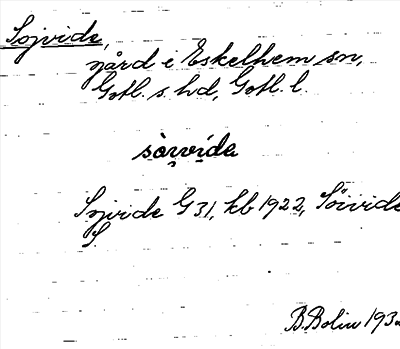 Sojvide,
gård i Eskelhem sn,
Gotl. s. hd, Gotl. l.
sòrvida
Sojvide G 31, kb 1922, Söivide
S.
B. Bolin 193